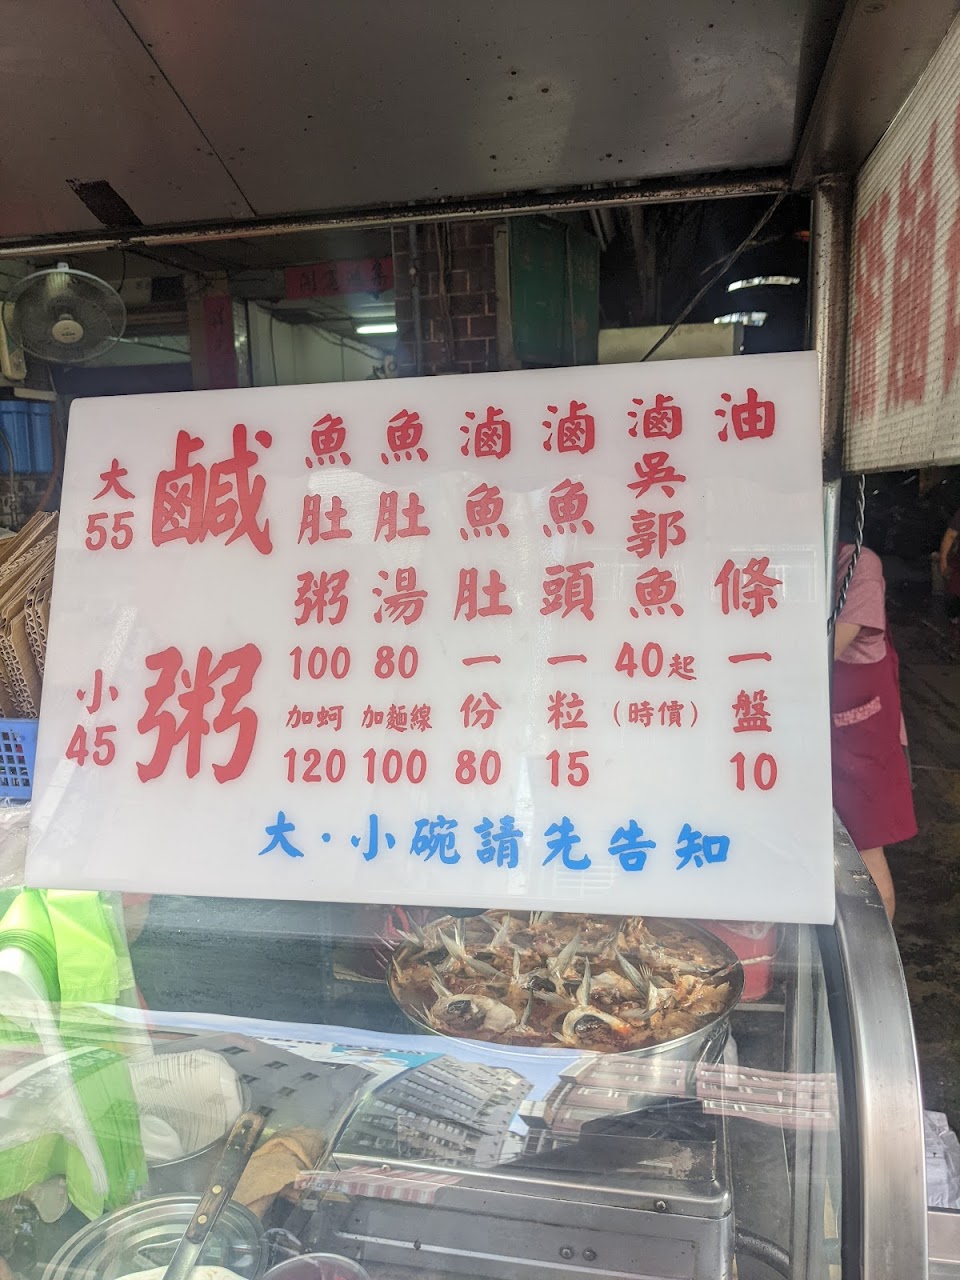 鹹粥
大
55
小
45
魚肚粥
100
加蚵
120
魚肚湯
80
加麵線
100
滷魚肚
一份
80
滷魚頭
一粒
15
滷吳郭魚
40起
(時價)
油條
一盤
10
大·小碗請先告知